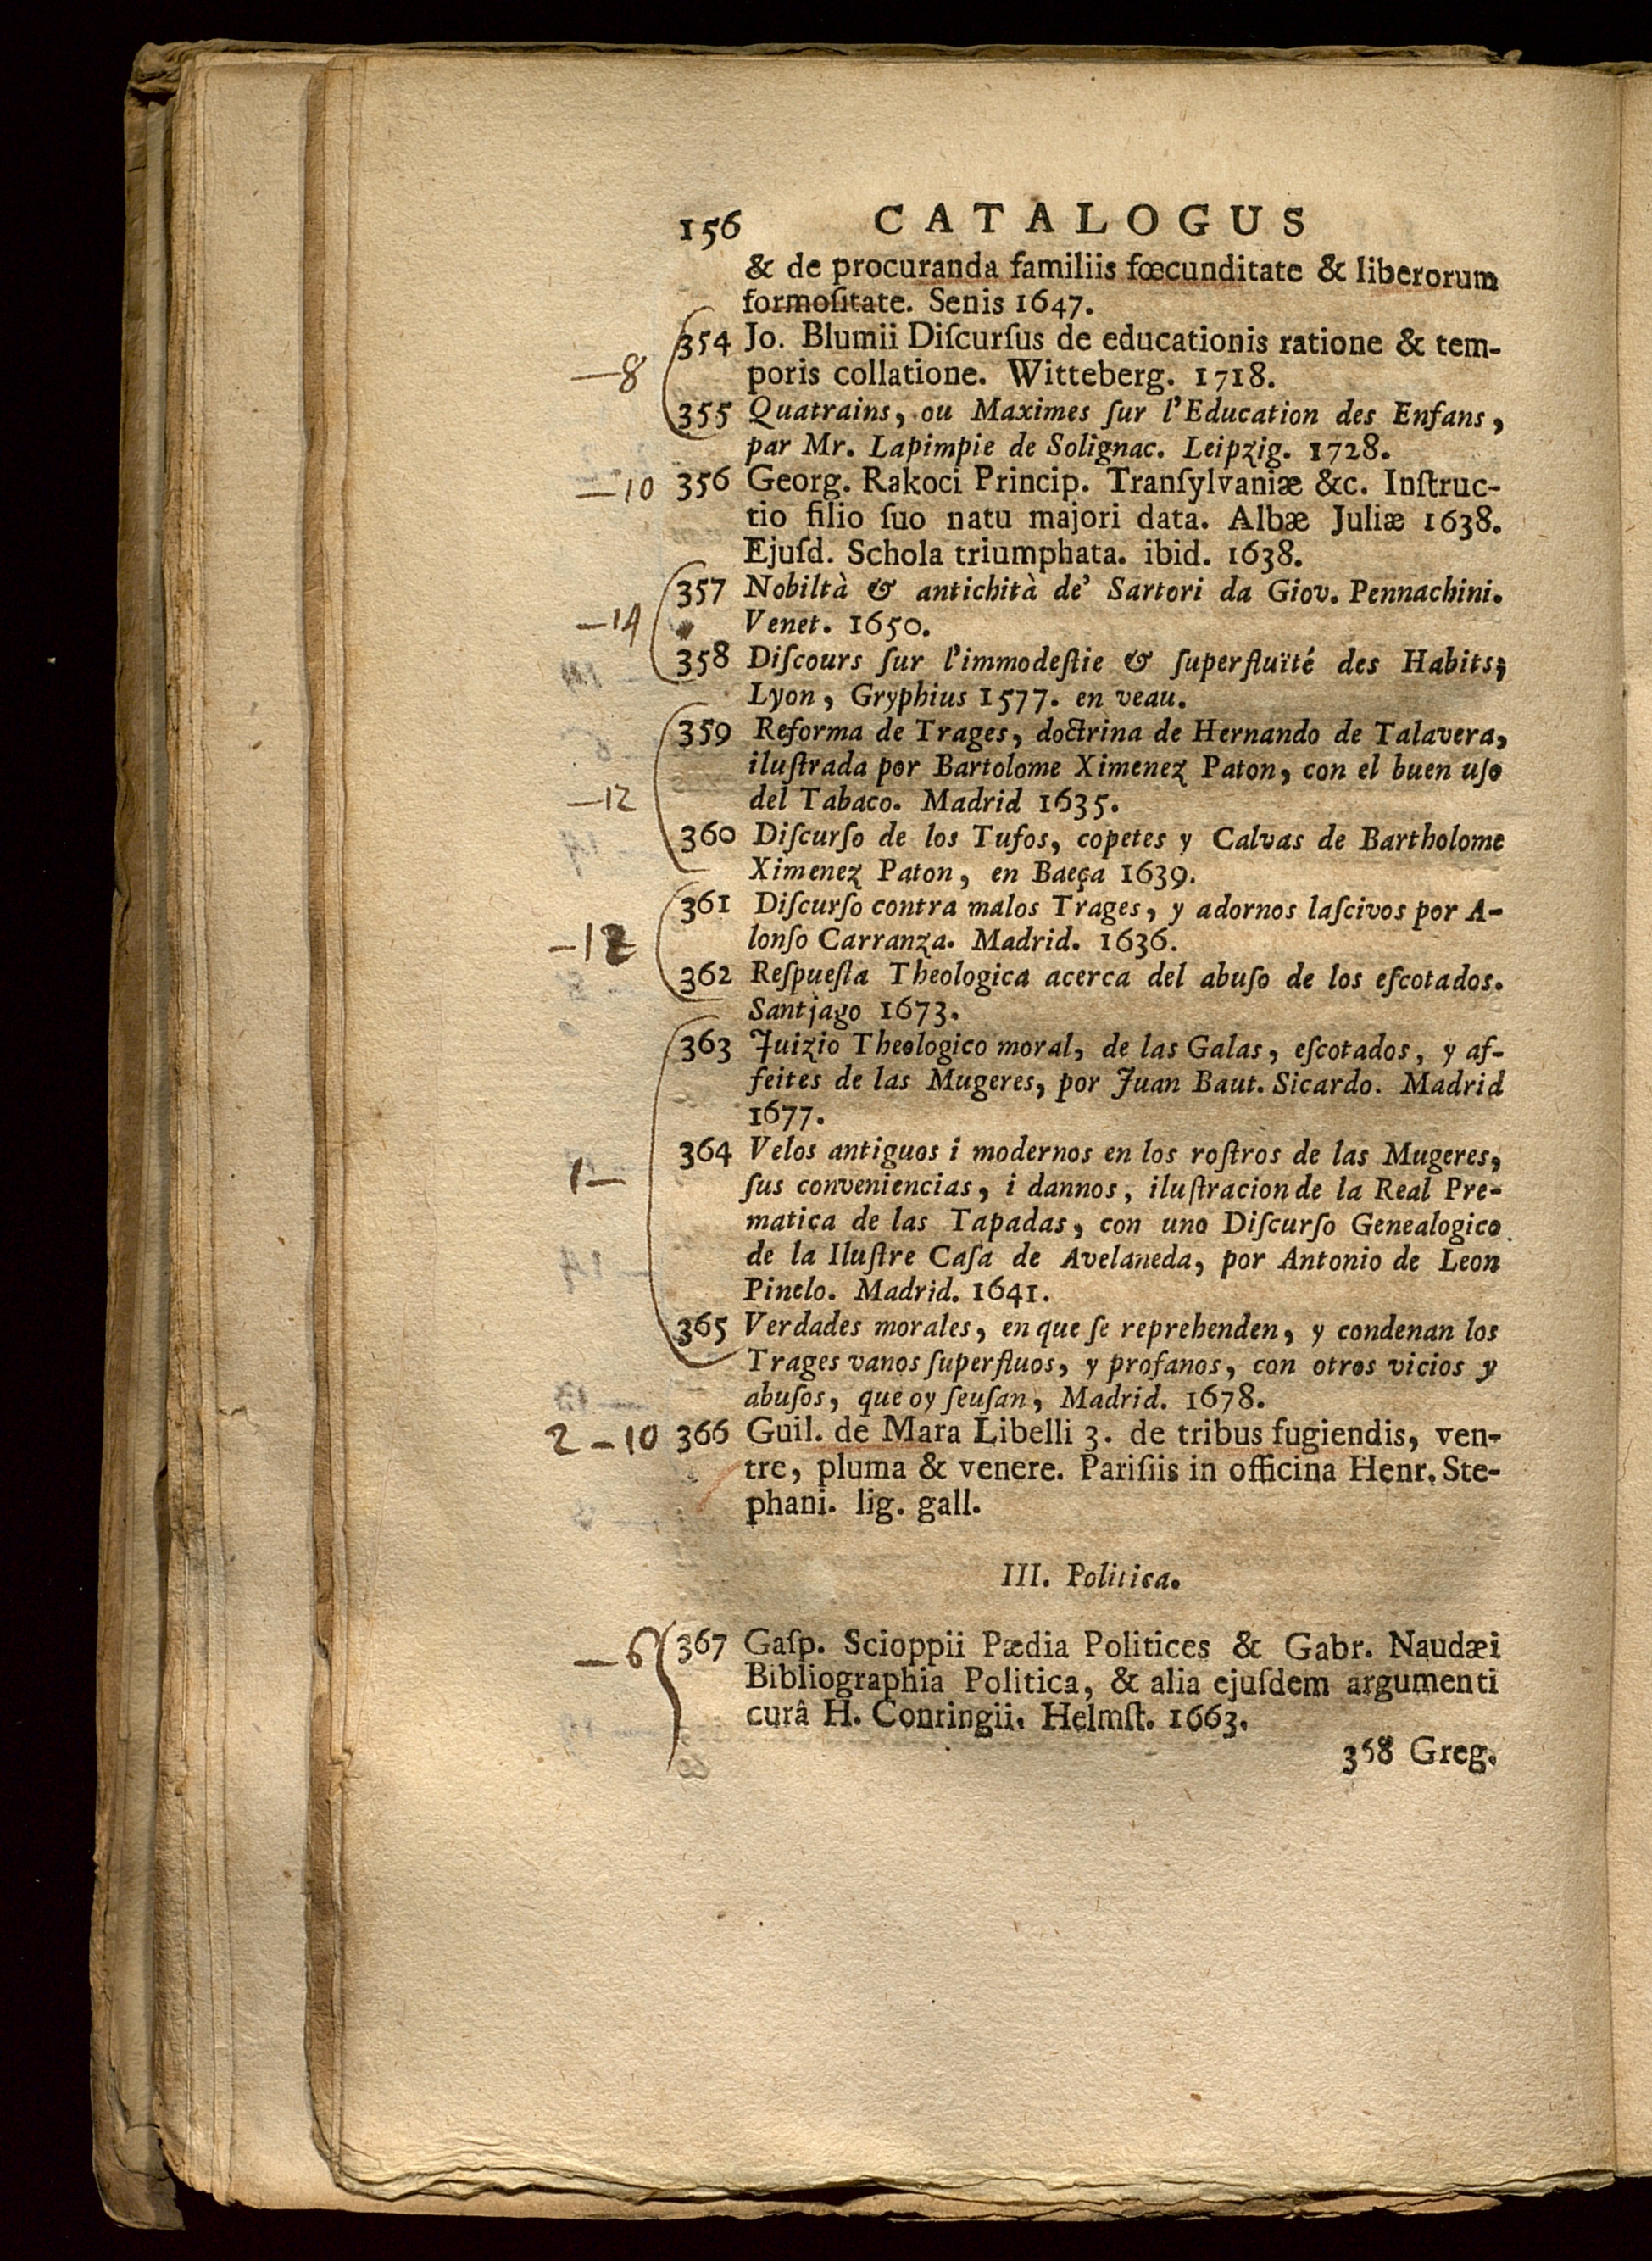 156 CATALOGUS
& de procuranda familiis fœcunditate & liberorum
formoſitate. Senis 1647.
354 Jo. Blumii Diſcurſus de educationis ratione & tem-
—8
poris collatione. Witteberg. 1718.
355 Quatrains, ou Maximes ſur l'Education des Enfans,
par Mr. Lapimpie de Solignac. Leipzig. 1728.
—10 356 Georg. Rakoci Princip. Tranſylvaniæ &c. Inſtruc-
tio filio ſuo natu majori data. Albæ Juliæ 1638.
Ejuſd. Schola triumphata. ibid. 1638.
357 Nobiltà & antichità de' Sartori da Giov. Pennachini.
—14
Venet. 1650.
358 Diſcours ſur l'immodeſtie & ſuperfluïté des Habits;
Lyon, Gryphius 1577. en veau.
359 Reforma de Trages, doctrina de Hernando de Talavera,
iluſtrada por Bartolome Ximenez Paton, con el buen uſo
—12
del Tabaco. Madrid 1635.
360 Diſcurſo de los Tufos, copetes y Calvas de Bartholome
Ximenez Paton, en Baeça 1639.
361 Diſcurſo contra malos Trages, y adornos laſcivos por A-
—12
lonſo Carranza. Madrid. 1636.
362 Reſpueſta Theologica acerca del abuſo de los eſcotados.
Santjago 1673.
363 Juizio Theologico moral, de las Galas, eſcotados, y af-
feites de las Mugeres, por Juan Baut. Sicardo. Madrid
1677.
364 Velos antiguos i modernos en los roſtros de las Mugeres,
1—
ſus conveniencias, i dannos, iluſtracion de la Real Pre-
matica de las Tapadas, con uno Diſcurſo Genealogico
de la Iluſtre Caſa de Avelaneda, por Antonio de Leon
Pinelo. Madrid. 1641.
365 Verdades morales, en que ſe reprehenden, y condenan los
Trages vanos ſuperfluos, y profanos, con otros vicios y
abuſos, que oy ſeuſan, Madrid. 1678.
2—10 366 Guil. de Mara Libelli 3. de tribus fugiendis, ven-
tre, pluma & venere. Pariſiis in officina Henr. Ste-
phani. lig. gall.
III. Politica.
—6 367 Gaſp. Scioppii Pædia Politices & Gabr. Naudæi
Bibliographia Politica, & alia ejuſdem argumenti
curâ H. Conringii. Helmſt. 1663.
368 Greg.